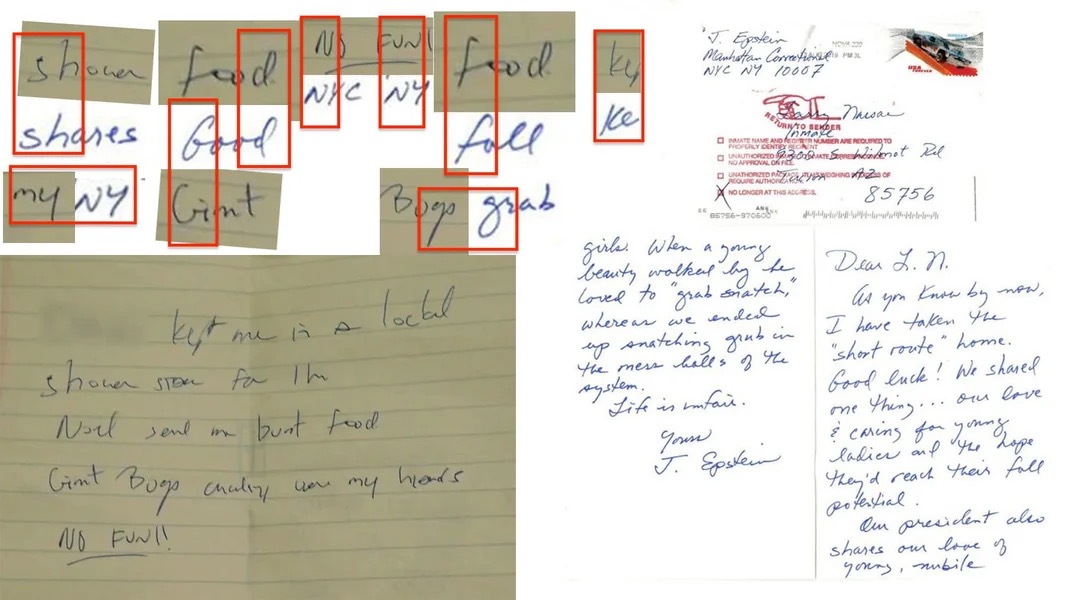 shower food NO FUN! food kept
shares Good NYC NY full Ke
my NY Giant Bugs grab
kept me in a locked
shower stall for 1 hr
Noel sent me burnt food
Giant Bugs crawling over my hands
NO FUN!!
J. Epstein
Manhattan Correctional
NYC NY 10007
USA
FOREVER
RETURN TO SENDER
Larry Nassar
Inmate
9300 S. Wilmot Rd
Tucson AZ
85756
INMATE NAME AND REGISTER NUMBER ARE REQUIRED TO
PROPERLY IDENTIFY RECIPIENT
UNAUTHORIZED
NO APPROVAL ON FILE.
UNAUTHORIZED
REQUIRE
NO LONGER AT THIS ADDRESS.
girls. When a young
beauty walked by he
loved to "grab snatch,"
whereas we ended
up snatching grub in
the mess halls of the
system.
Life is unfair.
Yours
J. Epstein
Dear L. N.
As you know by now,
I have taken the
"short route" home.
Good luck! We shared
one thing... our love
& caring for young
ladies and the hope
they'd reach their full
potential.
Our president also
shares our love of
young, nubile